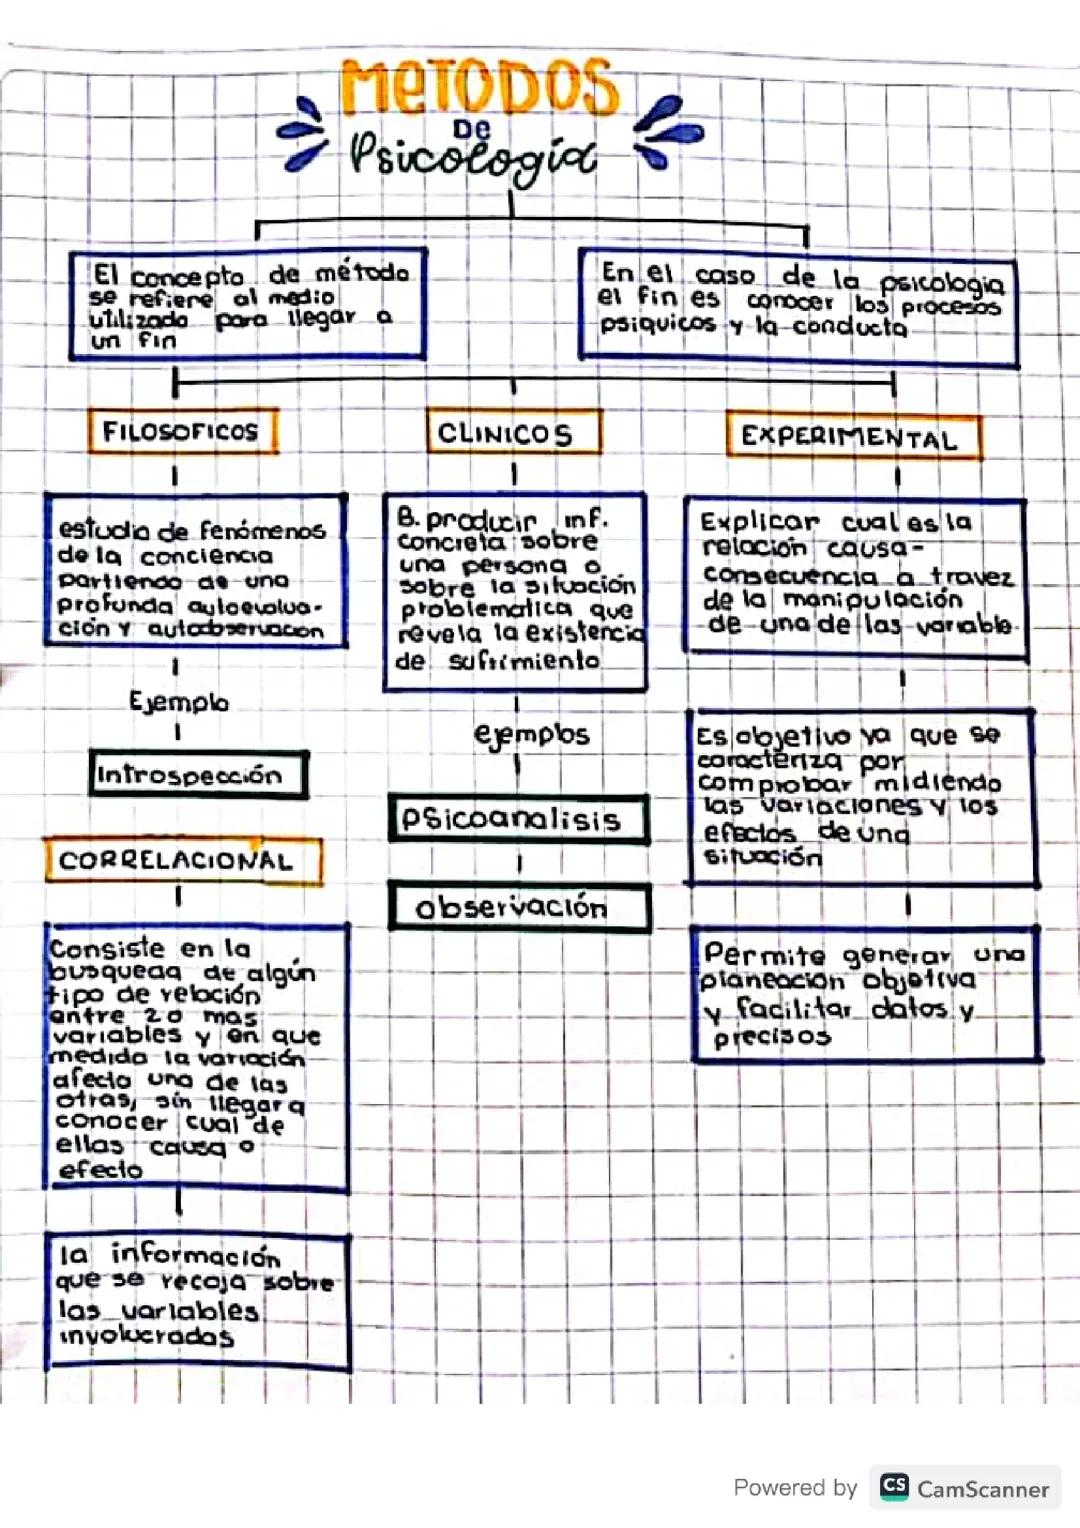 METODOS
DE
Psicología
El concepto de método
se refiere al medio
utilizado para llegar a
un fin
En el caso de la psicologia
el fin es conocer los procesos
psiquicos y la conducta
FILOSOFICOS
CLINICOS
EXPERIMENTAL
estudio de fenómenos
de la conciencia
partiendo de una
profunda autoevolua-
ción y autoobservacon
Ejemplo
Introspección
B. producir inf.
concreta sobre
una persona o
sobre la situación
problematica que
revela la existencia
de sufrimiento
ejemplos
psicoanalisis
observación
Explicar cual es la
relación causa-
consecuencia a travez
de la manipulación
de una de las variable
Es objetivo ya que se
caracteriza por
comprobar midiendo
las variaciones y los
efectos de una
situación
Permite generar una
planeación objetiva
y facilitar datos y
precisos
CORRELACIONAL
Consiste en la
busqueda de algún
tipo de relación
entre 2 o mas
variables y en que
medida la variación
afecta una de las
otras, sin llegar a
conocer cual de
ellas causa o
efecto
la información
que se recoja sobre
las variables
involucradas
Powered by CS CamScanner